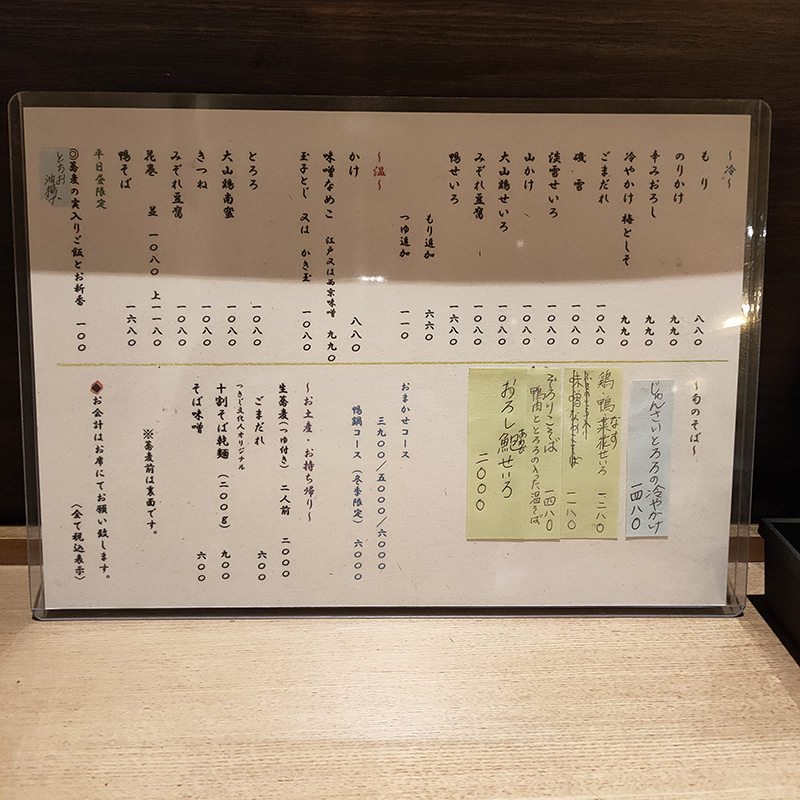 〜冷〜
もり 八八〇
のりかけ 九九〇
辛みおろし 九九〇
冷やかけ 梅としそ 九九〇
ごまだれ 一〇八〇
磯雪 一〇八〇
淡雪せいろ 一〇八〇
山かけ 一〇八〇
大山鶏せいろ 一〇八〇
みぞれ豆腐 一〇八〇
鴨せいろ 一六八〇
もり追加 六六〇
つゆ追加 一一〇
〜温〜
かけ 八八〇
味噌なめこ 江戸又は西京味噌 九九〇
玉子とじ 又は かき玉 一〇八〇
とろろ 一〇八〇
大山鶏南蛮 一〇八〇
きつね 一〇八〇
みぞれ豆腐 一〇八〇
花巻 並 一〇八〇 上 一一八〇
鴨そば 一六八〇
平日昼限定
◎蕎麦の実入りご飯とお新香 一〇〇
とちお油揚げ
〜旬のそば〜
じゅんさいとろろの冷やかけ
一四八〇
鶏鴨菜花せいろ 一二八〇
なす
一一八〇
ぞろりこそば 一四八〇
鴨肉ととろろの入った温そば
おろし鮑せいろ
二〇〇〇
おまかせコース
三九〇〇／五〇〇〇／六〇〇〇
鴨鍋コース（冬季限定） 六〇〇〇
〜お土産・お持ち帰り〜
生蕎麦（つゆ付き） 二人前 二〇〇〇
ごまだれ 六〇〇
つきじ文化人オリジナル
十割そば乾麺（二〇〇g） 九〇〇
そば味噌 六〇〇
※蕎麦前は裏面です。
◆お会計はお席にてお願い致します。
（全て税込表示）